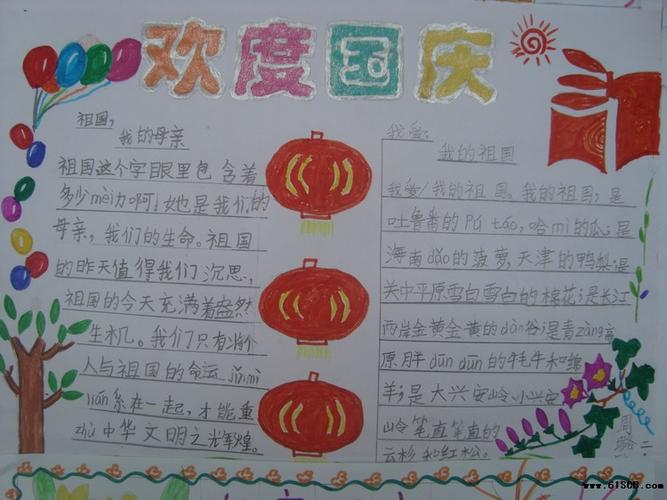 欢度国庆
祖国,
我的母亲
祖国这个字眼里包含着
多少mèi力啊!她也是我们的
母亲,我们的生命。祖国
的昨天值得我们沉思,
祖国的今天充满着盎然
生机。我们只有将个
人与祖国的命运jǐnmì
lián系在一起,才能重
zhù中华文明之光辉煌。
我爱!
我的祖国
我爱!我的祖国。我的祖国,是
吐鲁番的Pú táo,哈mì的瓜;是
海南dǎo的菠萝,天津的鸭梨;是
关中平原雪白雪白的棉花;是长江
两岸金黄金黄的dào谷;是青zàng高
原胖dūn dūn的牦牛和绵
羊;是大兴安岭、小兴安
岭笔直笔直的
云杉和红松。
二
周
www.61SCB.com